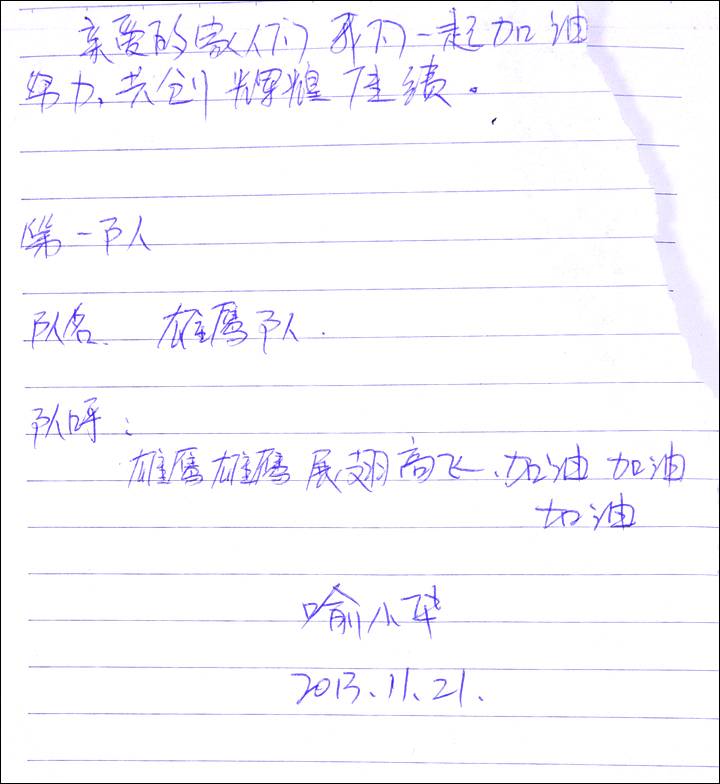 亲爱的家人们 我们一起加油
努力,共创辉煌佳绩。
第一队
队名 雄鹰队.
队呼:
雄鹰雄鹰展翅高飞、加油 加油
加油
喻小华
2013.11.21.